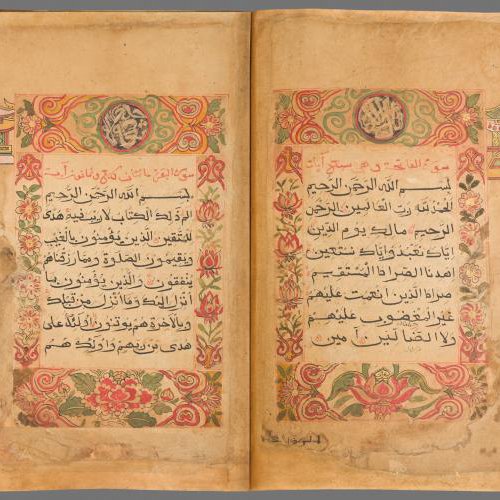 سورة الفاتحة وهي سبع آيات
بسم الله الرحمن الرحيم
الحمد لله رب العالمين الرحمن
الرحيم مالك يوم الدين
اياك نعبد واياك نستعين
اهدنا الصراط المستقيم
صراط الذين انعمت عليهم
غير المغضوب عليهم
ولا الضالين آمين
سورة البقرة مائتان وثمانون آية
بسم الله الرحمن الرحيم
الم ذلك الكتاب لا ريب فيه هدى
للمتقين الذين يؤمنون بالغيب
ويقيمون الصلوة ومما رزقناهم
ينفقون والذين يؤمنون بما
أنزل اليك وما أنزل من قبلك
وبالآخرة هم يوقنون اولئك على
هدى من ربهم واولئك هم